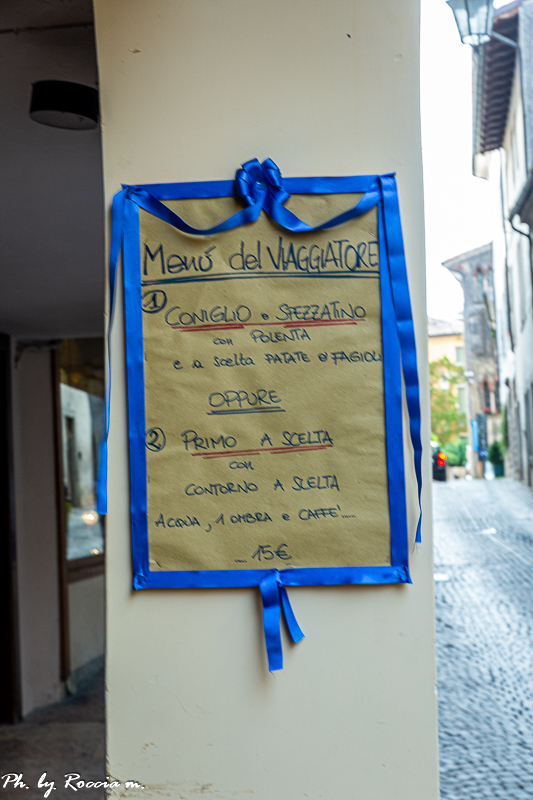 Menú del VIAGGIATORE
1 CONIGLIO e SPEZZATINO
con POLENTA
e a scelta PATATE o FAGIOLI
OPPURE
2 PRIMO A SCELTA
con
CONTORNO A SCELTA
ACQUA, 1 OMBRA e CAFFE'.....
... 15€
Ph. by Roccia m.